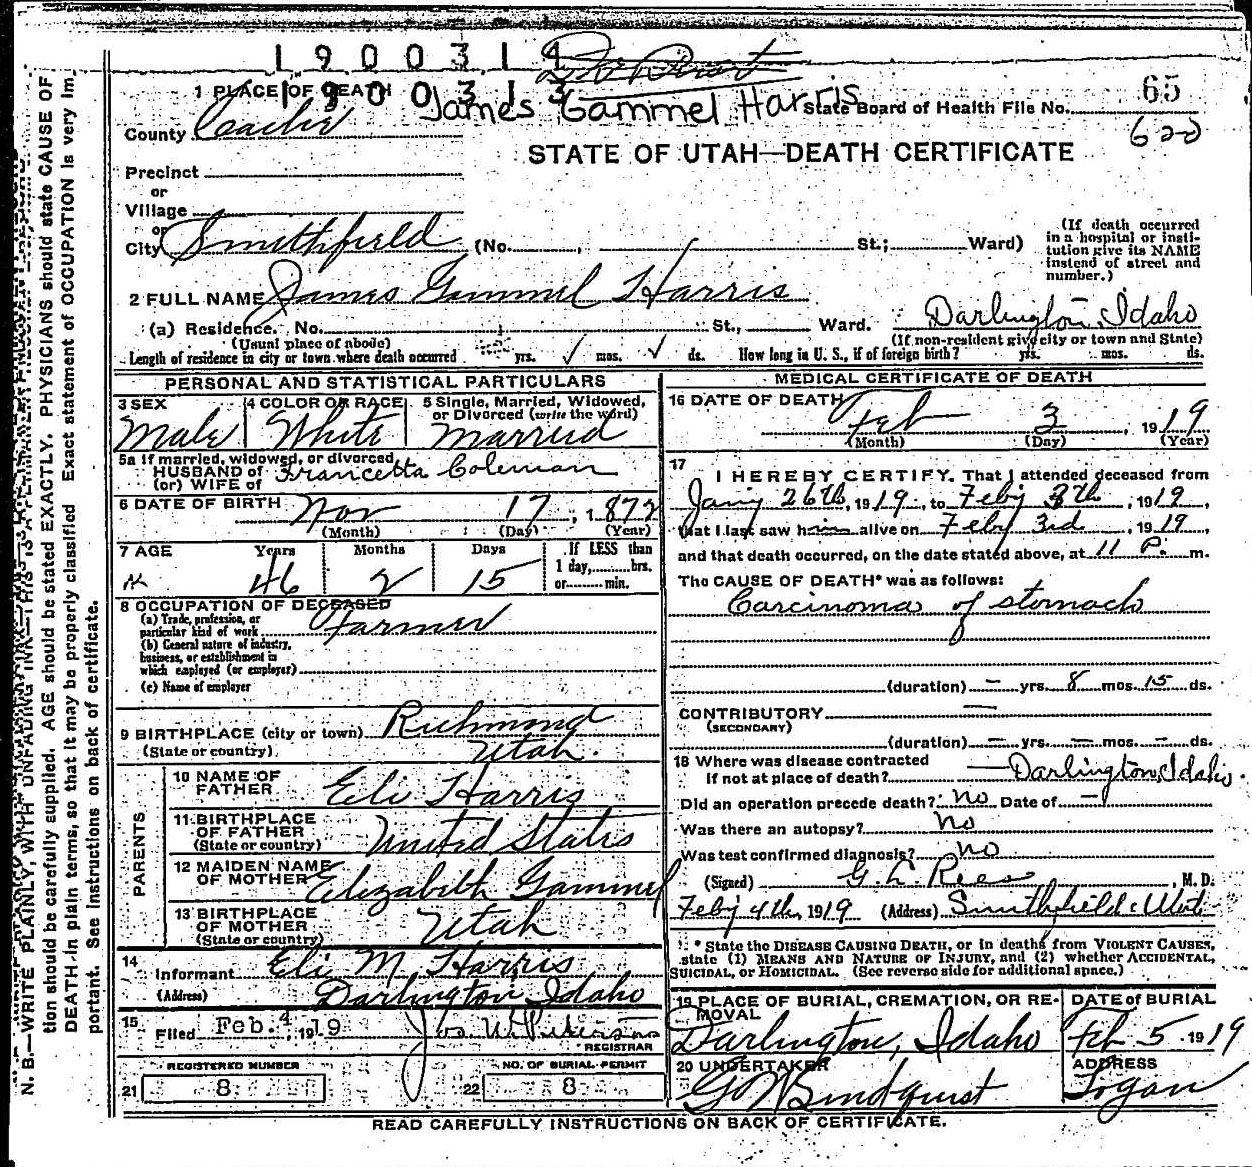 1900314
1900313
James Gammel Harris
1 PLACE OF DEATH
County Cache
State Board of Health File No. 65
622
STATE OF UTAH—DEATH CERTIFICATE
Precinct
or
Village
or
City Smithfield (No. , St.; Ward)
(If death occurred in a hospital or institution give its NAME instead of street and number.)
2 FULL NAME James Gammel Harris
(a) Residence. No. St., Ward. Darlington, Idaho
(Usual place of abode) (If non-resident give city or town and State)
Length of residence in city or town where death occurred yrs. mos. ds. How long in U. S., if of foreign birth? yrs. mos. ds.
PERSONAL AND STATISTICAL PARTICULARS
3 SEX Male
4 COLOR OR RACE White
5 Single, Married, Widowed, or Divorced (write the word) Married
5a If married, widowed, or divorced
HUSBAND of Francetta Coleman
(or) WIFE of
6 DATE OF BIRTH Nov 17, 1872
(Month) (Day) (Year)
7 AGE Years Months Days If LESS than
46 2 15 1 day, hrs.
or min.
8 OCCUPATION OF DECEASED
(a) Trade, profession, or particular kind of work Farmer
(b) General nature of industry, business, or establishment in which employed (or employer)
(c) Name of employer
9 BIRTHPLACE (city or town) Richmond
(State or country) Utah.
PARENTS
10 NAME OF FATHER Eli Harris
11 BIRTHPLACE OF FATHER (State or country) United States
12 MAIDEN NAME OF MOTHER Elizabeth Gammel
13 BIRTHPLACE OF MOTHER (State or country) Utah
14 Informant Eli M. Harris
(Address) Darlington Idaho
15 Filed Feb. 4, 1919
REGISTRAR
REGISTERED NUMBER
21 8
NO. OF BURIAL PERMIT
22 8
MEDICAL CERTIFICATE OF DEATH
16 DATE OF DEATH Feb 3 1919
(Month) (Day) (Year)
17 I HEREBY CERTIFY, That I attended deceased from
Jany 26th, 1919, to Feby 3th, 1919,
that I last saw him alive on Feby 3rd, 1919
and that death occurred, on the date stated above, at 11 P. m.
The CAUSE OF DEATH* was as follows:
Carcinoma of stomach
(duration) — yrs. 8 mos. 15 ds.
CONTRIBUTORY —
(SECONDARY)
(duration) — yrs. — mos. — ds.
18 Where was disease contracted
if not at place of death? — Darlington, Idaho.
Did an operation precede death? No Date of —
Was there an autopsy? No
Was test confirmed diagnosis? No
(Signed) G. L. Rees, M. D.
Feby 4th, 1919 (Address) Smithfield, Utah
* State the DISEASE CAUSING DEATH, or in deaths from VIOLENT CAUSES,
state (1) MEANS AND NATURE OF INJURY, and (2) whether ACCIDENTAL,
SUICIDAL, or HOMICIDAL. (See reverse side for additional space.)
19 PLACE OF BURIAL, CREMATION, OR REMOVAL Darlington, Idaho
DATE of BURIAL Feb 5 1919
20 UNDERTAKER G W Lindquist
ADDRESS Logan
READ CAREFULLY INSTRUCTIONS ON BACK OF CERTIFICATE.
N. B.—WRITE PLAINLY, WITH UNFADING INK—THIS IS A PERMANENT RECORD.
tion should be carefully supplied. AGE should be stated EXACTLY. PHYSICIANS should state CAUSE OF
DEATH in plain terms, so that it may be properly classified Exact statement of OCCUPATION is very im
portant. See instructions on back of certificate.